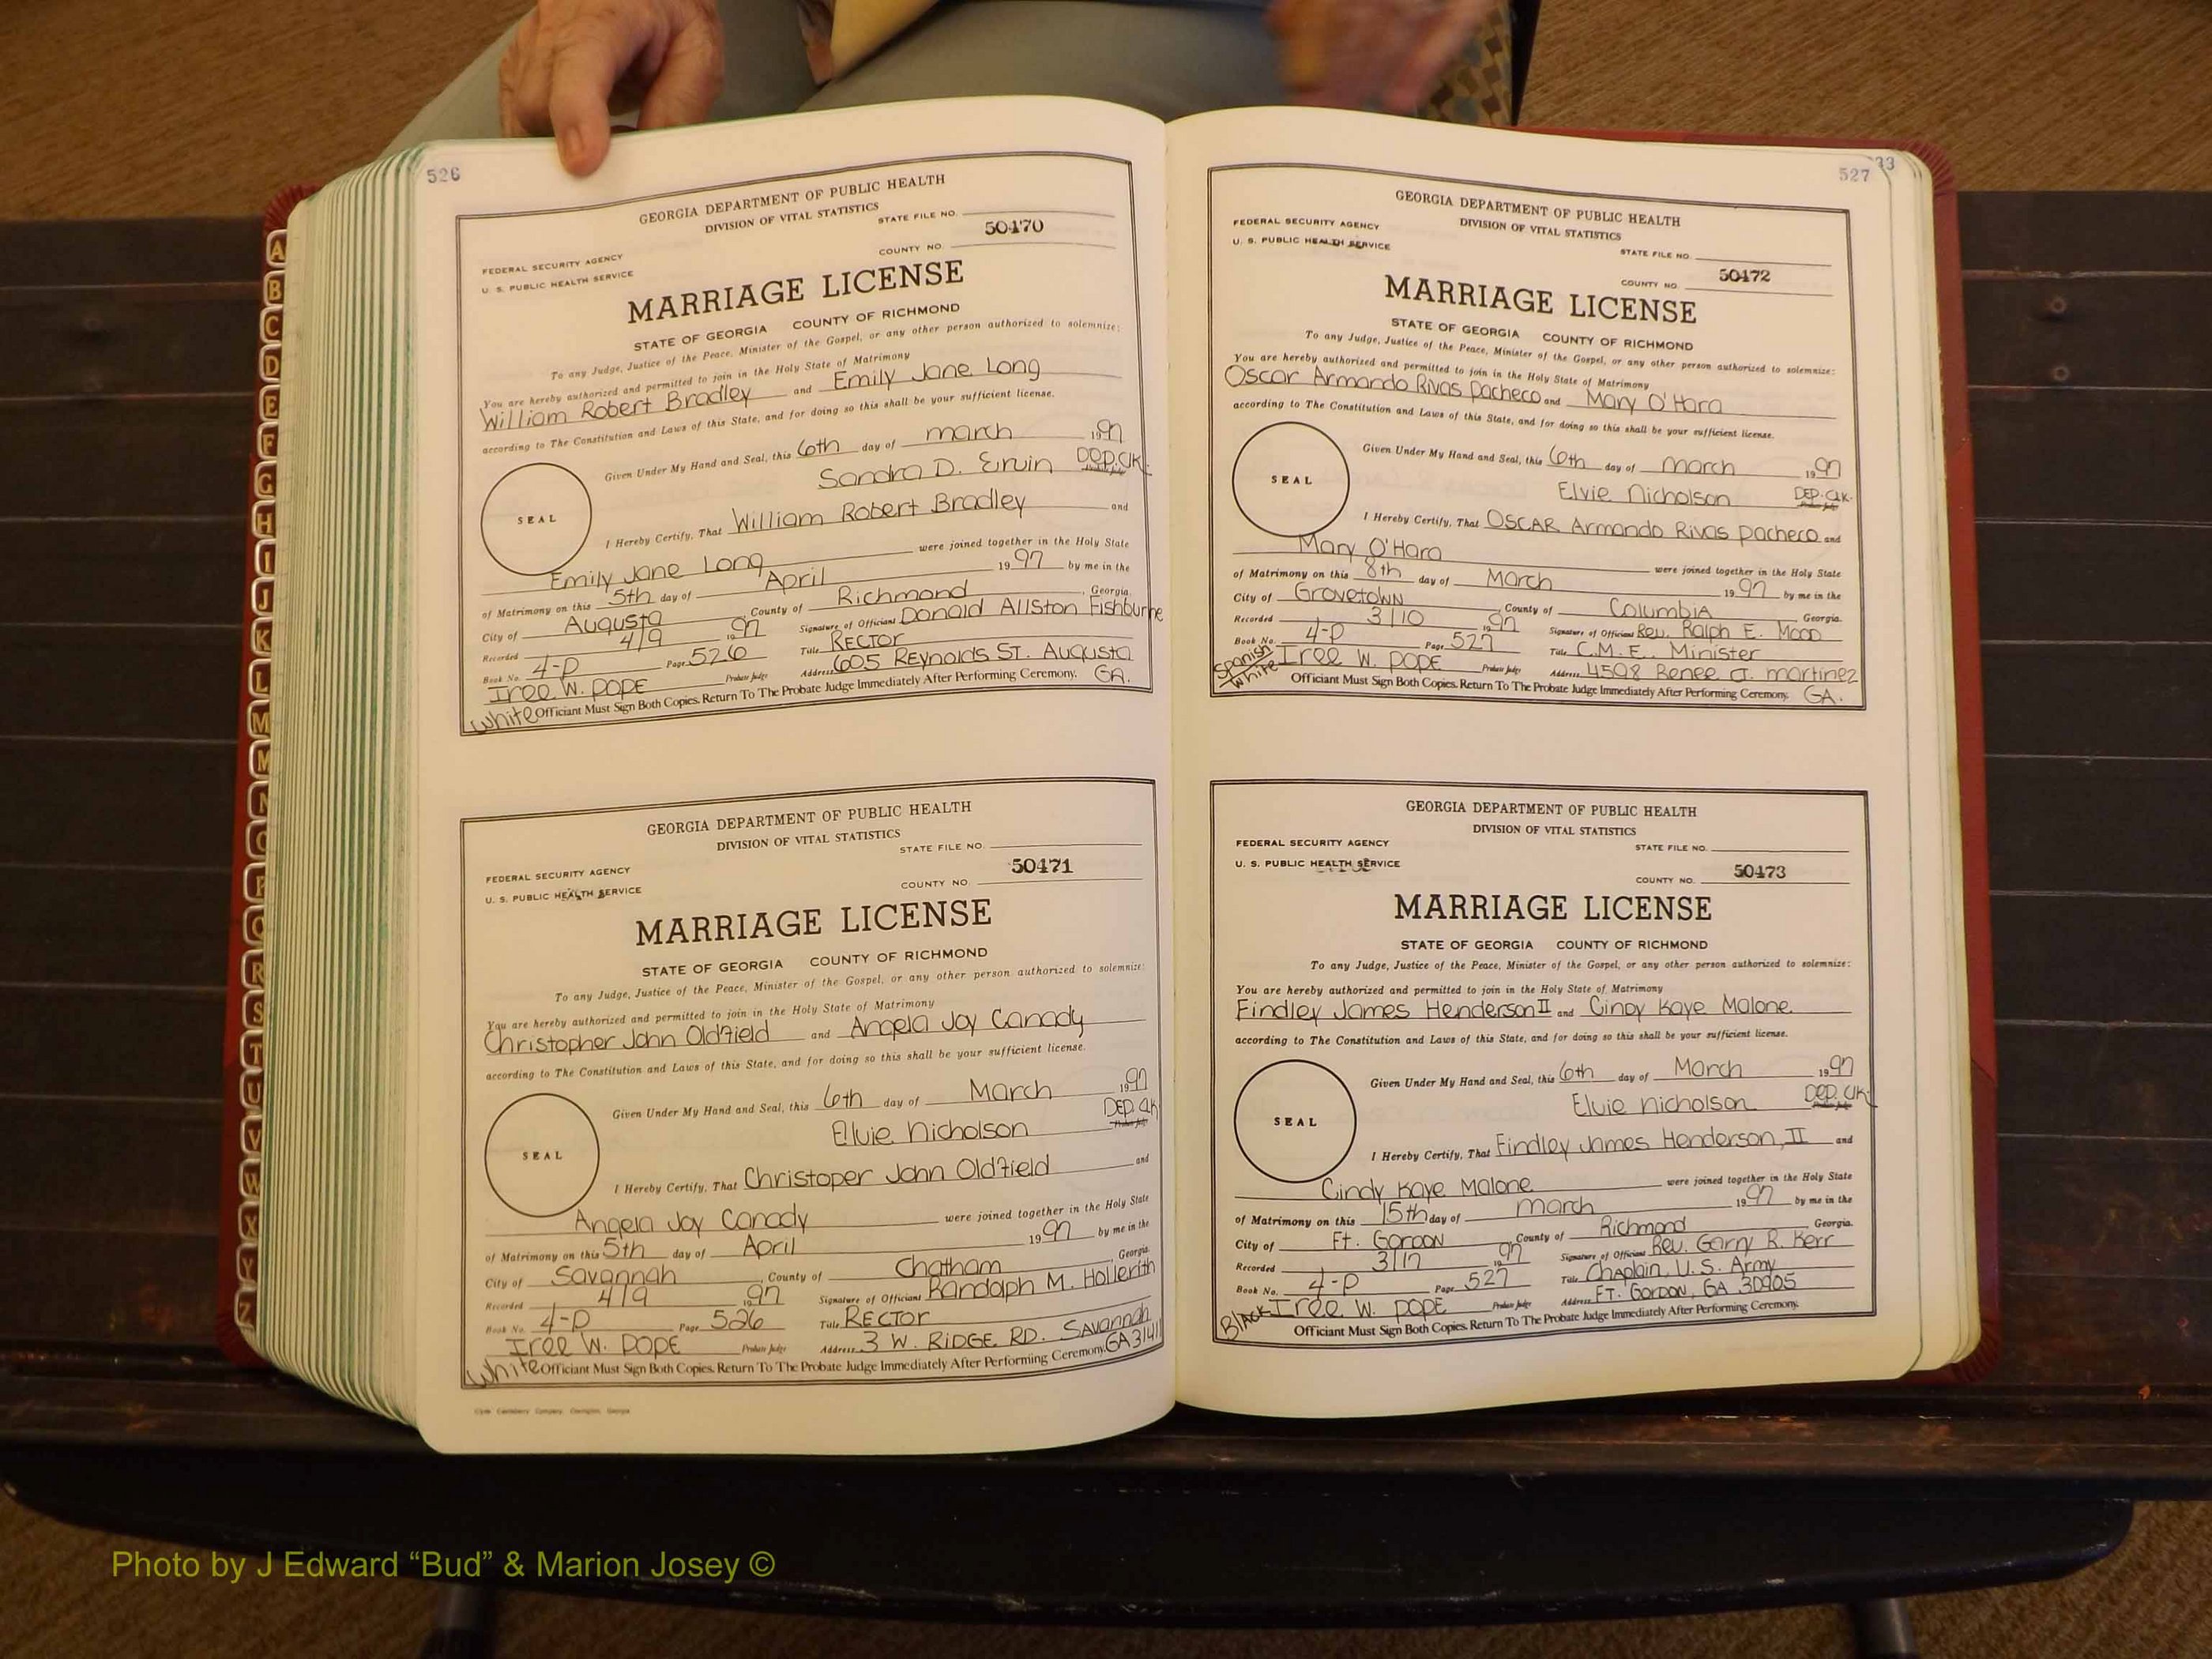 526
GEORGIA DEPARTMENT OF PUBLIC HEALTH
DIVISION OF VITAL STATISTICS
STATE FILE NO.
FEDERAL SECURITY AGENCY
U. S. PUBLIC HEALTH SERVICE
COUNTY NO. 50470
MARRIAGE LICENSE
STATE OF GEORGIA COUNTY OF RICHMOND
To any Judge, Justice of the Peace, Minister of the Gospel, or any other person authorized to solemnize:
You are hereby authorized and permitted to join in the Holy State of Matrimony
William Robert Bradley and Emily Jane Long
according to The Constitution and Laws of this State, and for doing so this shall be your sufficient license.
Given Under My Hand and Seal, this 6th day of march 1997
Sandra D. Ervin DEP. CLK.
SEAL
I Hereby Certify, That William Robert Bradley and
Emily Jane Long were joined together in the Holy State
of Matrimony on this 5th day of April 1997 by me in the
City of Augusta, County of Richmond, Georgia.
Recorded 4/9 1997 Signature of Official Donald Allston Fishburne
Book No. 4-D Page 526 Title RECTOR
Iree W. POPE Probate Judge Address 605 Reynolds St. Augusta GA.
White Officiant Must Sign Both Copies. Return To The Probate Judge Immediately After Performing Ceremony.
GEORGIA DEPARTMENT OF PUBLIC HEALTH
DIVISION OF VITAL STATISTICS
STATE FILE NO.
FEDERAL SECURITY AGENCY
U. S. PUBLIC HEALTH SERVICE
COUNTY NO. 50471
MARRIAGE LICENSE
STATE OF GEORGIA COUNTY OF RICHMOND
To any Judge, Justice of the Peace, Minister of the Gospel, or any other person authorized to solemnize:
You are hereby authorized and permitted to join in the Holy State of Matrimony
Christopher John Oldfield and Angela Joy Canady
according to The Constitution and Laws of this State, and for doing so this shall be your sufficient license.
Given Under My Hand and Seal, this 6th day of March 1997
Elvie Nicholson DEP. CLK
SEAL
I Hereby Certify, That Christoper John Oldfield and
Angela Joy Canady were joined together in the Holy State
of Matrimony on this 5th day of April 1997 by me in the
City of Savannah, County of Chatham Georgia.
Recorded 4/9 1997 Signature of Official Randolph M. Hollerith
Book No. 4-D Page 526 Title RECTOR
Iree W. POPE Probate Judge Address 3 W. RIDGE RD. Savannah GA 31411
White Officiant Must Sign Both Copies. Return To The Probate Judge Immediately After Performing Ceremony.
527
33
GEORGIA DEPARTMENT OF PUBLIC HEALTH
DIVISION OF VITAL STATISTICS
FEDERAL SECURITY AGENCY
U. S. PUBLIC HEALTH SERVICE
STATE FILE NO.
COUNTY NO. 50472
MARRIAGE LICENSE
STATE OF GEORGIA COUNTY OF RICHMOND
To any Judge, Justice of the Peace, Minister of the Gospel, or any other person authorized to solemnize:
You are hereby authorized and permitted to join in the Holy State of Matrimony
Oscar Armando Rivas Pacheco and Mary O'Hara
according to The Constitution and Laws of this State, and for doing so this shall be your sufficient license.
Given Under My Hand and Seal, this 6th day of March 1997
Elvie Nicholson DEP. CLK.
SEAL
I Hereby Certify, That OSCAR Armando Rivas Pacheco and
Mary O'Hara were joined together in the Holy State
of Matrimony on this 8th day of March 1997 by me in the
City of Grovetown, County of Columbia Georgia.
Recorded 3/10 1997 Signature of Official Rev. Ralph E. Moon
Book No. 4-D Page 527 Title C.M.E. Minister
Iree W. POPE Probate Judge Address 4598 Renee Ct. martinez GA.
Spanish
White
Officiant Must Sign Both Copies. Return To The Probate Judge Immediately After Performing Ceremony.
GEORGIA DEPARTMENT OF PUBLIC HEALTH
DIVISION OF VITAL STATISTICS
FEDERAL SECURITY AGENCY
U. S. PUBLIC HEALTH SERVICE
STATE FILE NO.
COUNTY NO. 50473
MARRIAGE LICENSE
STATE OF GEORGIA COUNTY OF RICHMOND
To any Judge, Justice of the Peace, Minister of the Gospel, or any other person authorized to solemnize:
You are hereby authorized and permitted to join in the Holy State of Matrimony
Findley James Henderson II and Cindy Kaye Malone
according to The Constitution and Laws of this State, and for doing so this shall be your sufficient license.
Given Under My Hand and Seal, this 6th day of March 1997
Elvie nicholson DEP. CLK.
SEAL
I Hereby Certify, That Findley James Henderson, II and
Cindy Kaye Malone were joined together in the Holy State
of Matrimony on this 15th day of march 1997 by me in the
City of Ft. Gordon, County of Richmond Georgia.
Recorded 3/17 1997 Signature of Official Rev. Garry R. Kerr
Book No. 4-D Page 527 Title Chaplain, U.S. Army
Black Iree W. POPE Probate Judge Address FT. Gordon, GA 30905
Officiant Must Sign Both Copies. Return To The Probate Judge Immediately After Performing Ceremony.
A
B
C
D
E
F
G
H
I
J
K
L
M
Mc
N
O
P
Q
R
S
T
U
V
W
X
Y
Z
Photo by J Edward “Bud” & Marion Josey ©